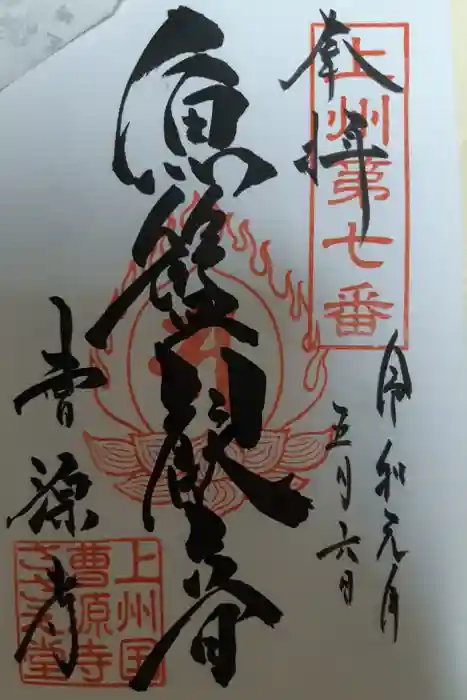 奉拝
上州第七番
令和元年
五月六日
魚籃観世音
曹源寺
上州国
曹源寺
さゞえ堂